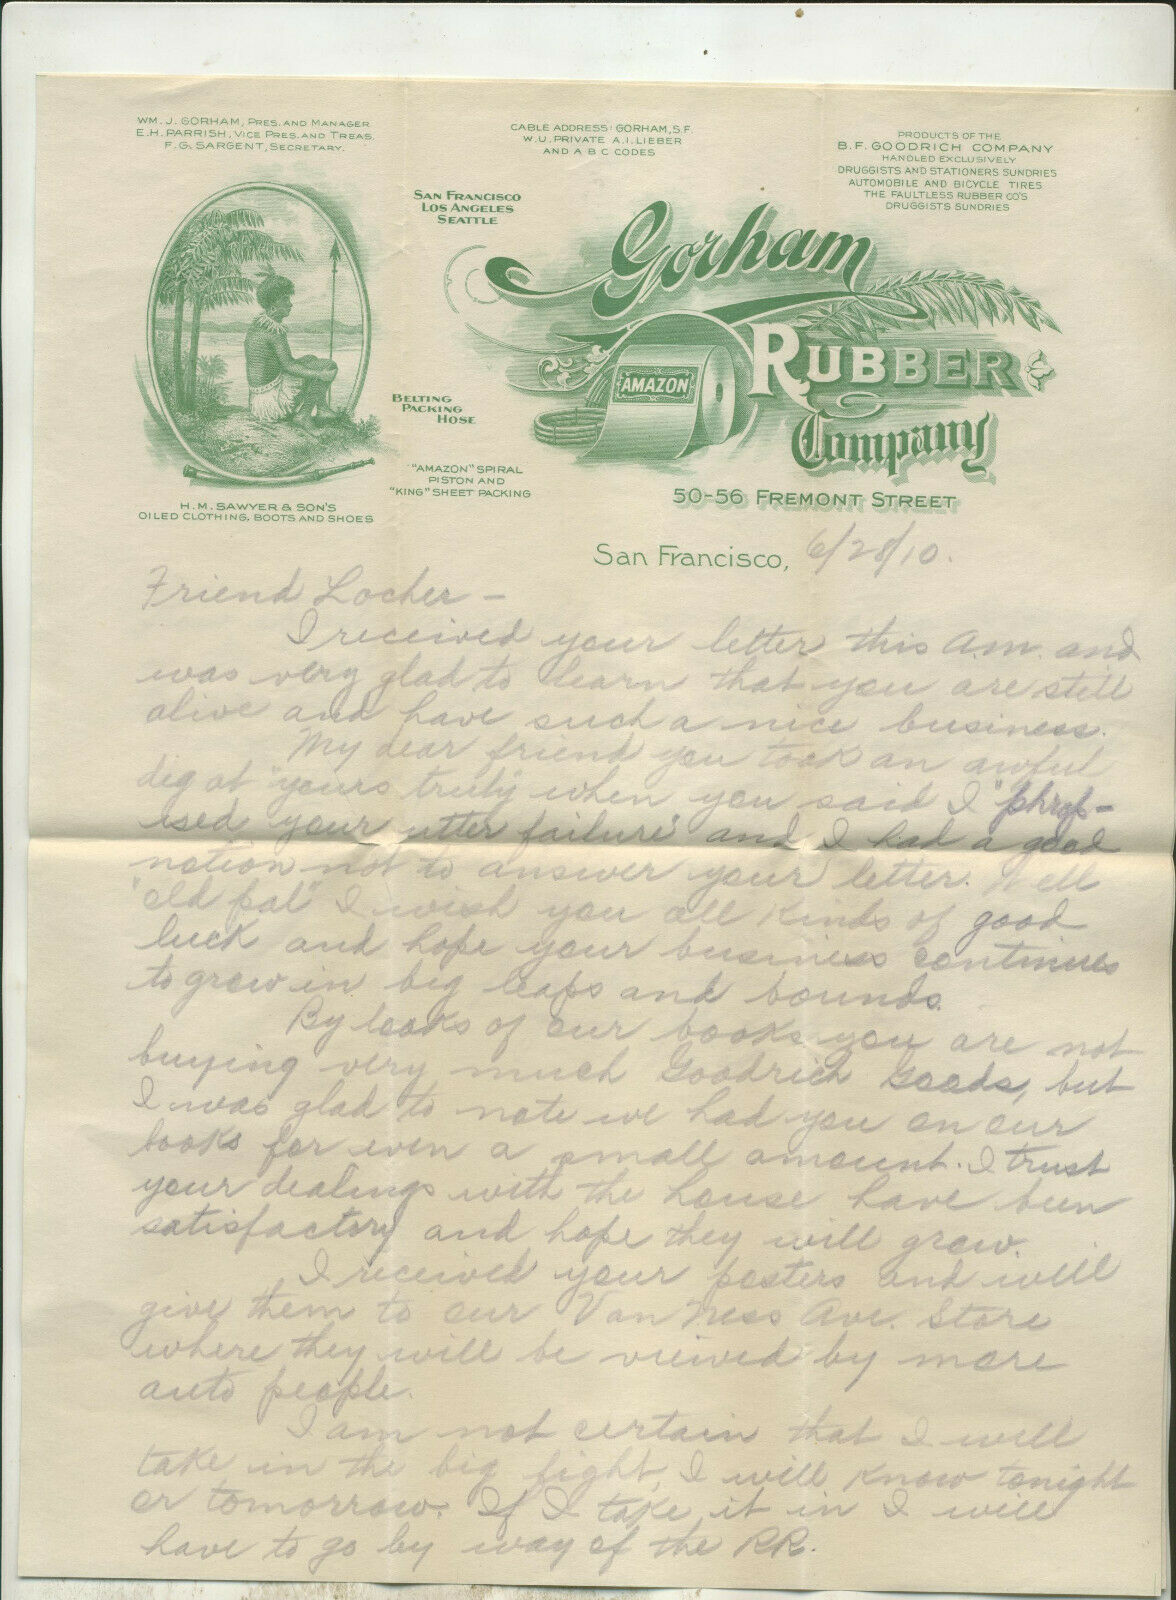 WM. J. GORHAM, PRES. AND MANAGER
E.H. PARRISH, VICE PRES. AND TREAS.
F.G. SARGENT, SECRETARY.
CABLE ADDRESS: GORHAM, S.F.
W.U. PRIVATE A.I. LIEBER
AND A B C CODES
PRODUCTS OF THE
B.F. GOODRICH COMPANY
HANDLED EXCLUSIVELY
DRUGGISTS AND STATIONERS SUNDRIES
AUTOMOBILE AND BICYCLE TIRES
THE FAULTLESS RUBBER CO'S
DRUGGISTS SUNDRIES
SAN FRANCISCO
LOS ANGELES
SEATTLE
Gorham
RUBBER
Company
AMAZON
BELTING
PACKING
HOSE
"AMAZON" SPIRAL
PISTON AND
"KING" SHEET PACKING
50-56 FREMONT STREET
H.M. SAWYER & SON'S
OILED CLOTHING, BOOTS AND SHOES
San Francisco, 6/28/10.
Friend Locher –
I received your letter this A.M. and
was very glad to learn that you are still
alive and have such a nice business.
My dear friend you took an awful
dig at "yours truly" when you said I "
ised your utter failure" and I had a good
notion not to answer your letter. Well
"old pal" I wish you all kinds of good
luck and hope your business continues
to grow in big leaps and bounds.
By looks of our books you are not
buying very much Goodrich Goods, but
I was glad to note we had you on our
books for even a small amount. I trust
your dealings with the house have been
satisfactory and hope they will grow.
I received your posters and will
give them to our Van Ness Ave. Store
where they will be viewed by more
auto people.
I am not certain that I will
take in the big fight, I will know tonight
or tomorrow. If I take it in I will
have to go by way of the RR.